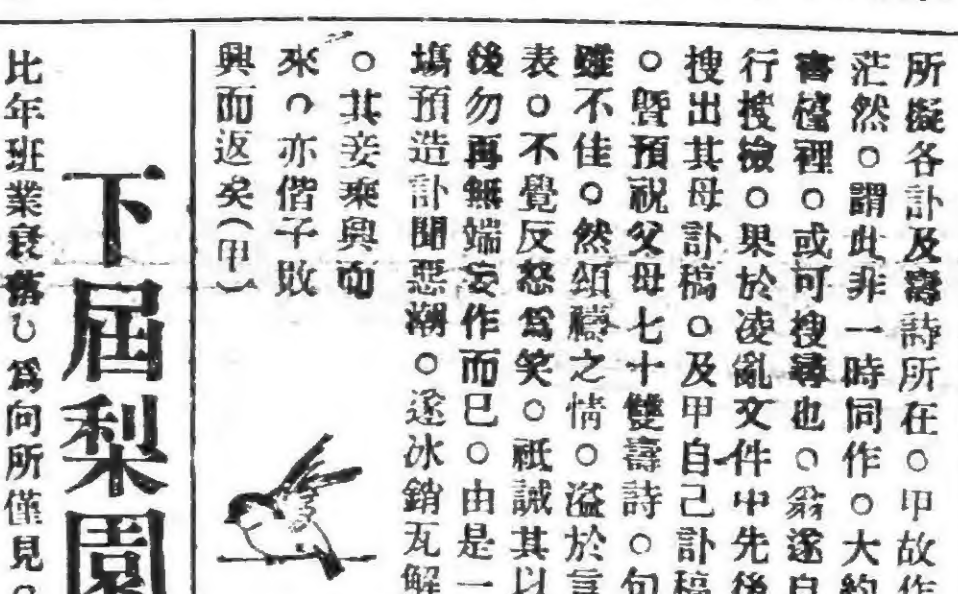 所擬各訃及壽詩所在。甲故作
茫然。謂此非一時同作。大約
書檯裡。或可搜尋也。翁遂自
行搜檢。果於凌亂文件中先後
搜出其母訃稿。及甲自己訃稿
。暨預祝父母七十雙壽詩。句
雖不佳。然頌禱之情。溢於言
表。不覺反怒爲笑。祇誡其以
後勿再無端妄作而已。由是一
塲預造訃聞惡潮。遂冰銷瓦解
。其妾乘興而
來。亦偕子敗
興而返矣(甲)
下屆梨園
比年班業衰落。爲向所僅見。